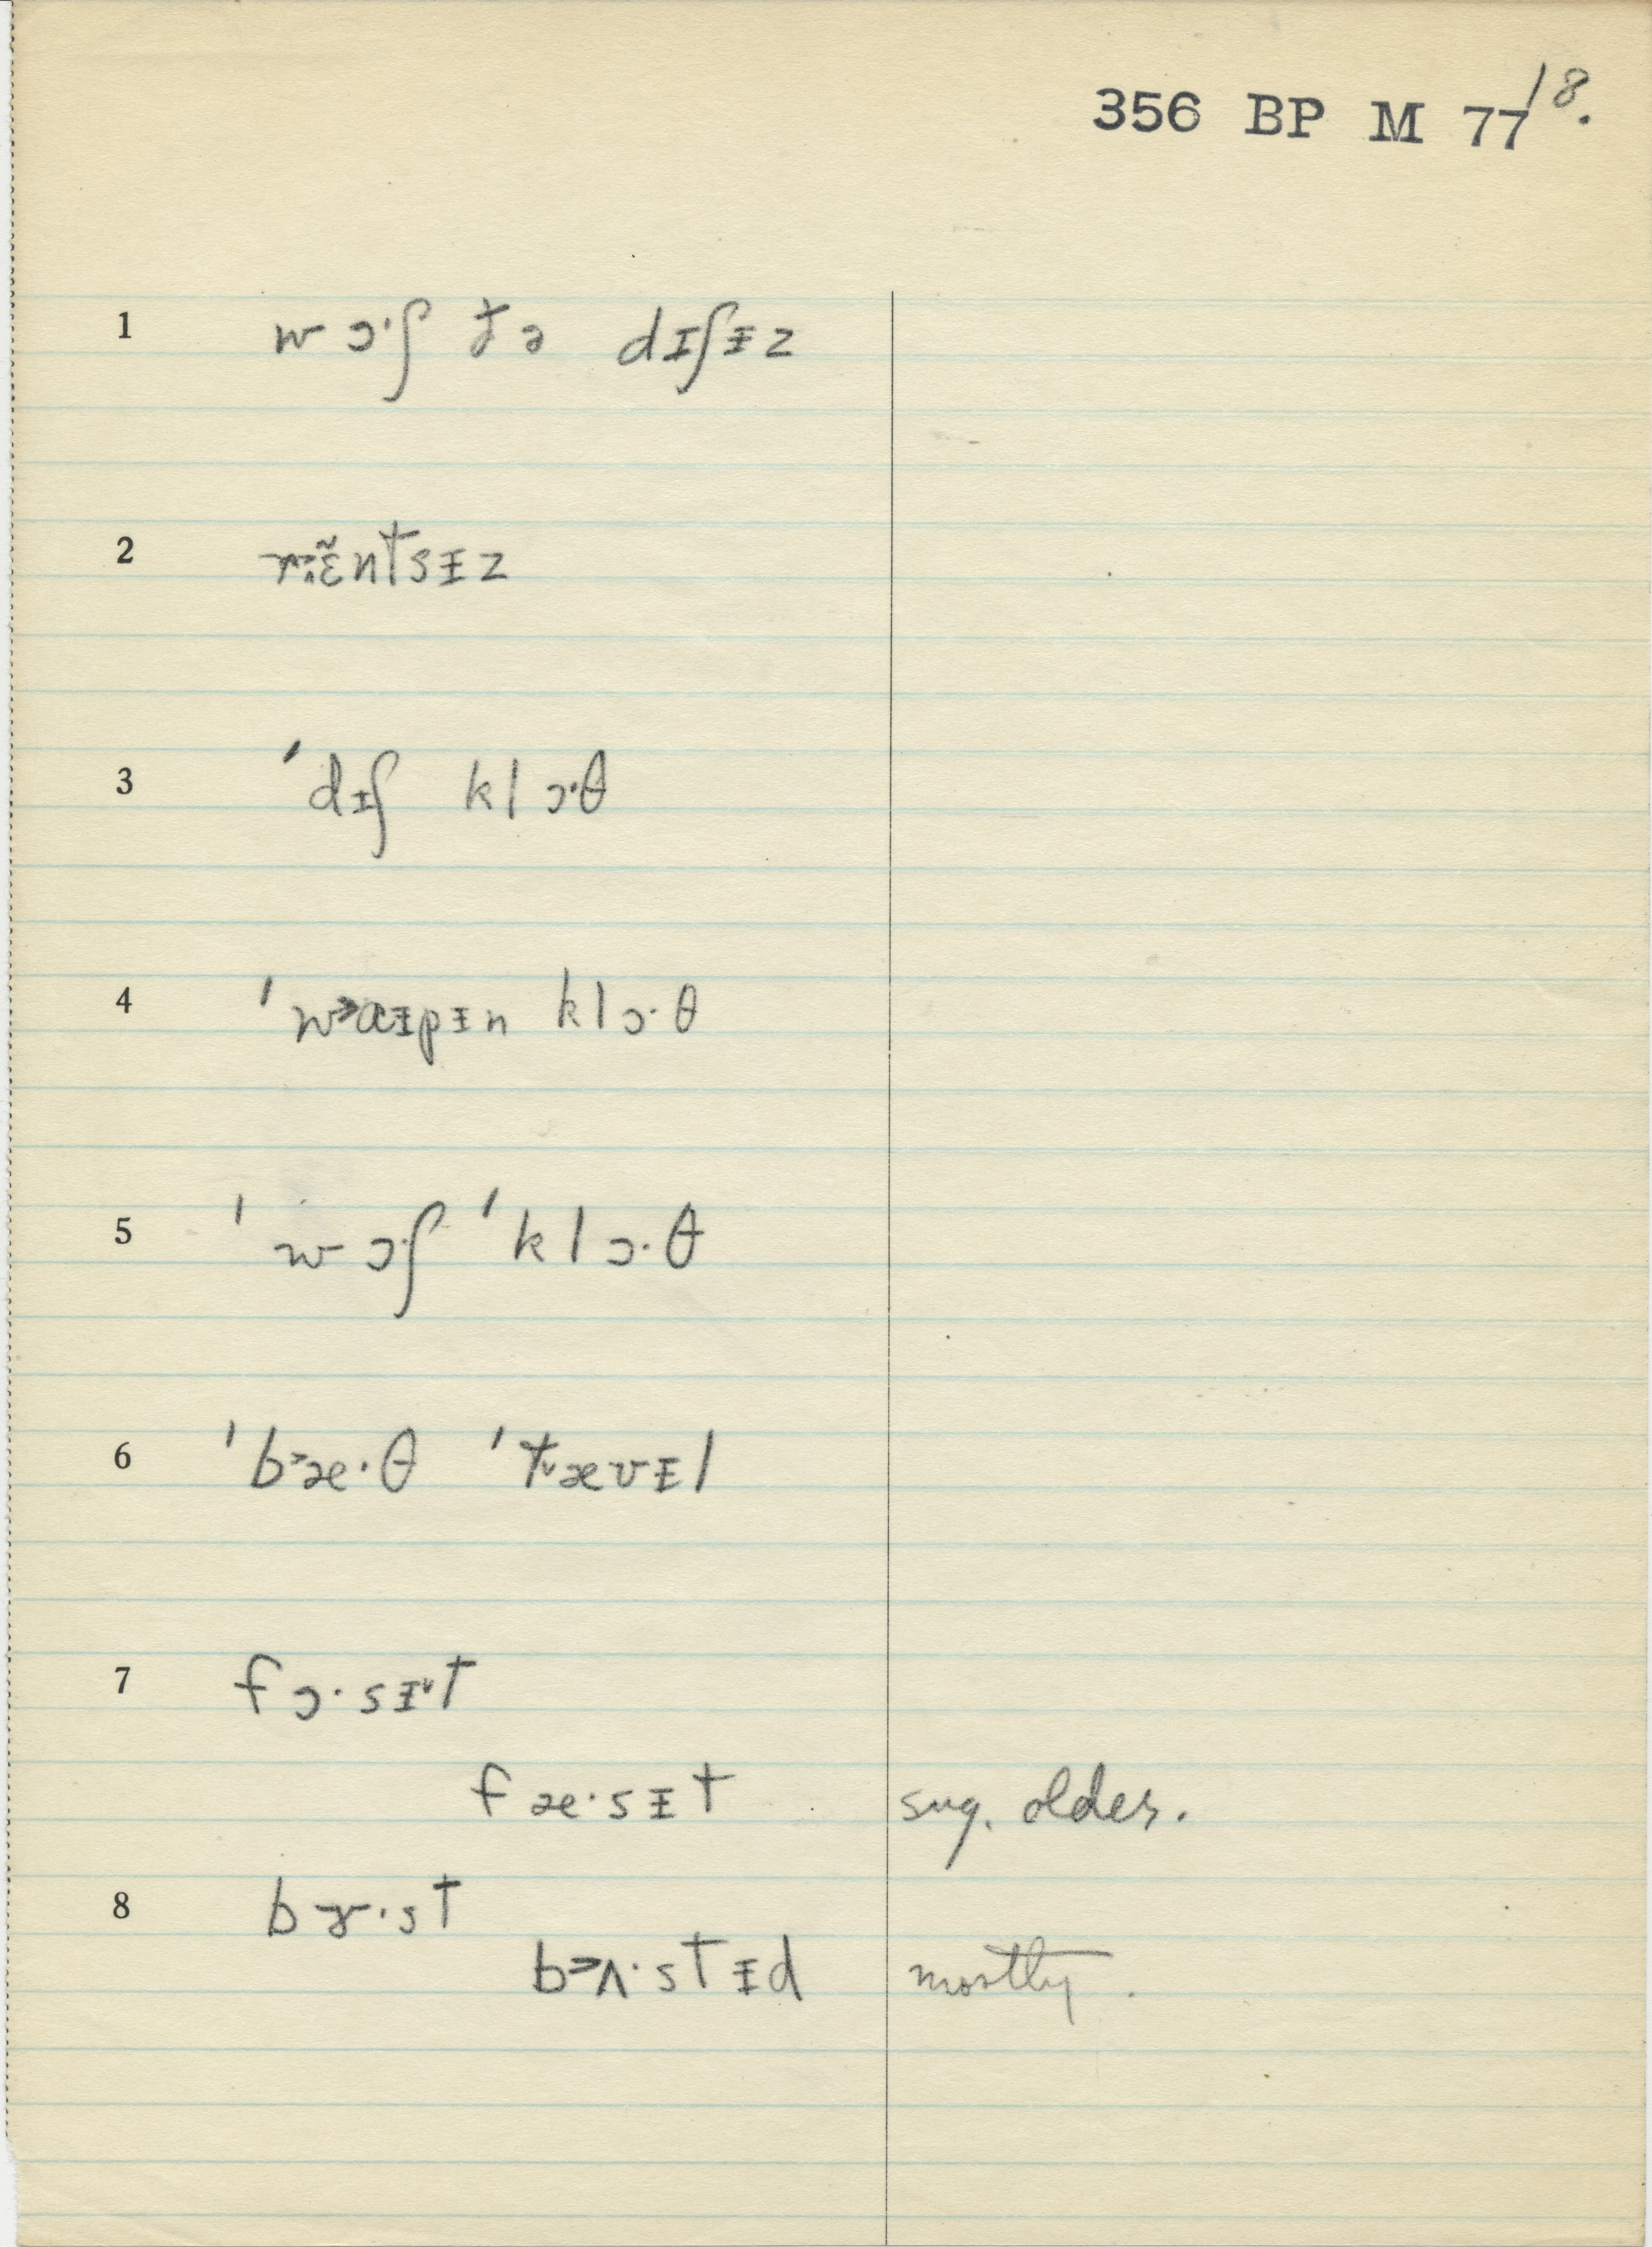 356 BP M 77 18.
1 wɔ·ʃ ðə dɪʃᵻz
2 rɛ̃ntsᵻz
3 ˈdᵻʃ klɔ·θ
4 ˈw˃ɑᵻpᵻn klɔ·θ
5 ˈwɔ·ʃ ˈklɔ·θ
6 ˈb˃æ·θ ˈt˅ævᵻl
7 fɔ·sᵻ˅t
fæ·sᵻt sug. older.
8 bɝ·st
b˃ʌ·stᵻd mostly.